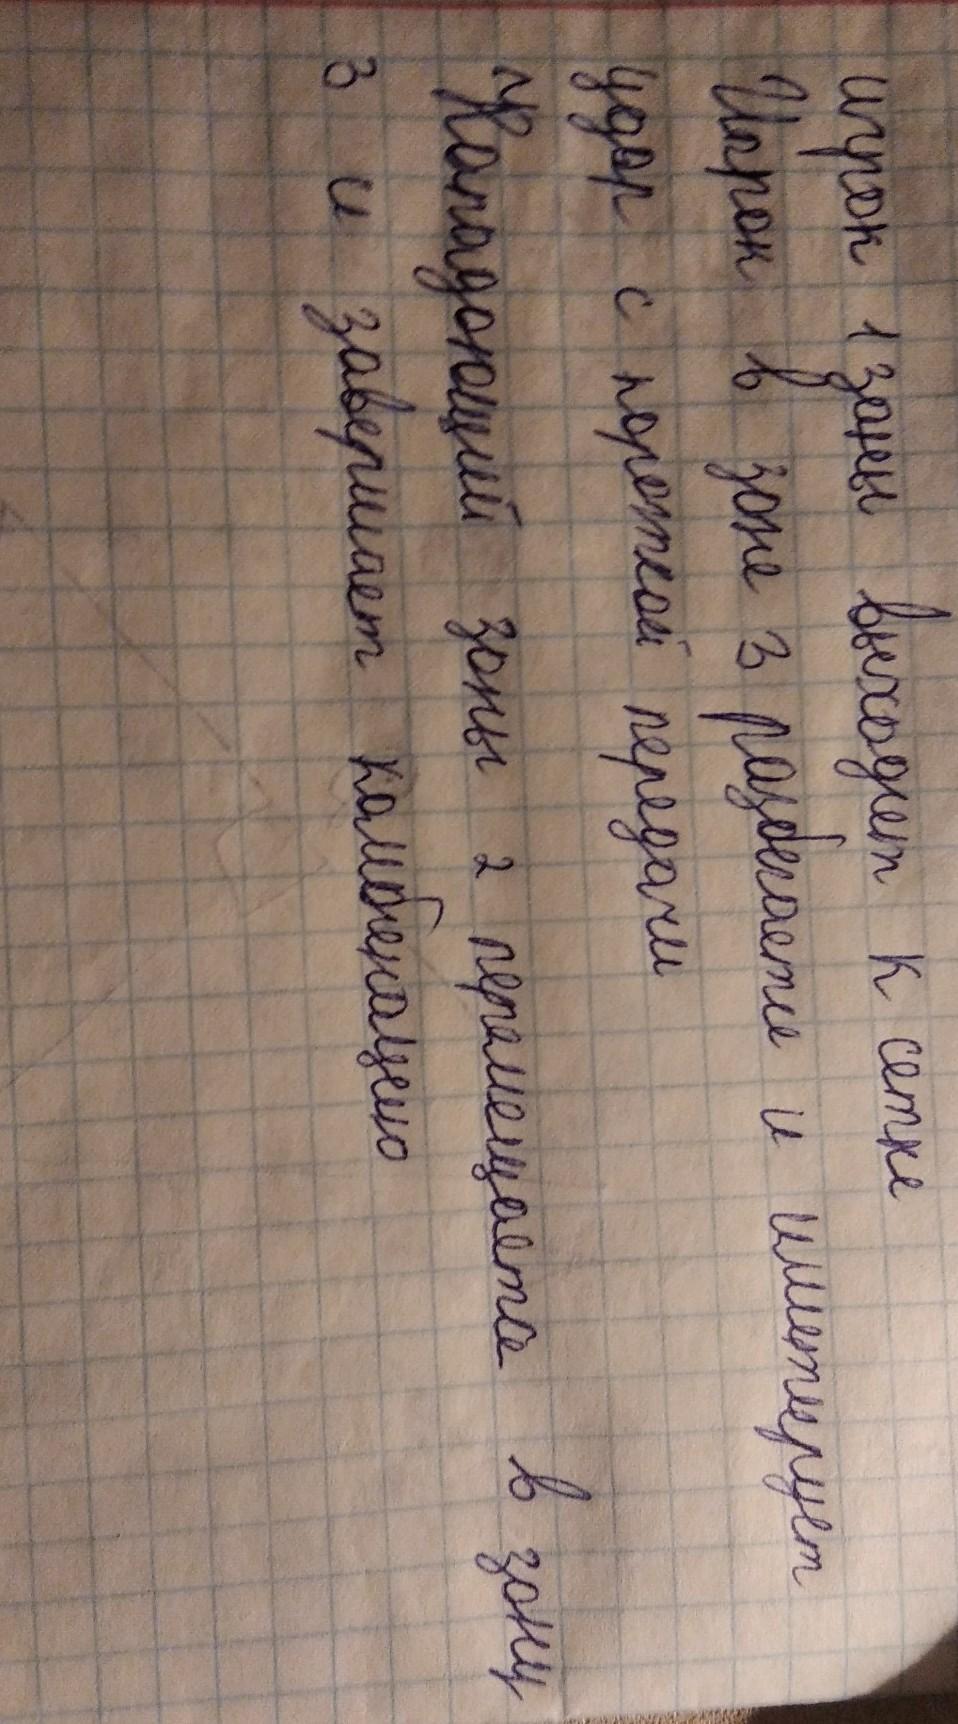 игрок 1 зоны выходит к сетке
Игрок в зоне 3 разбегается и имитирует
удар с короткой передачи
Нападающий зоны 2 перемещается в зону
3 и завершает комбинацию